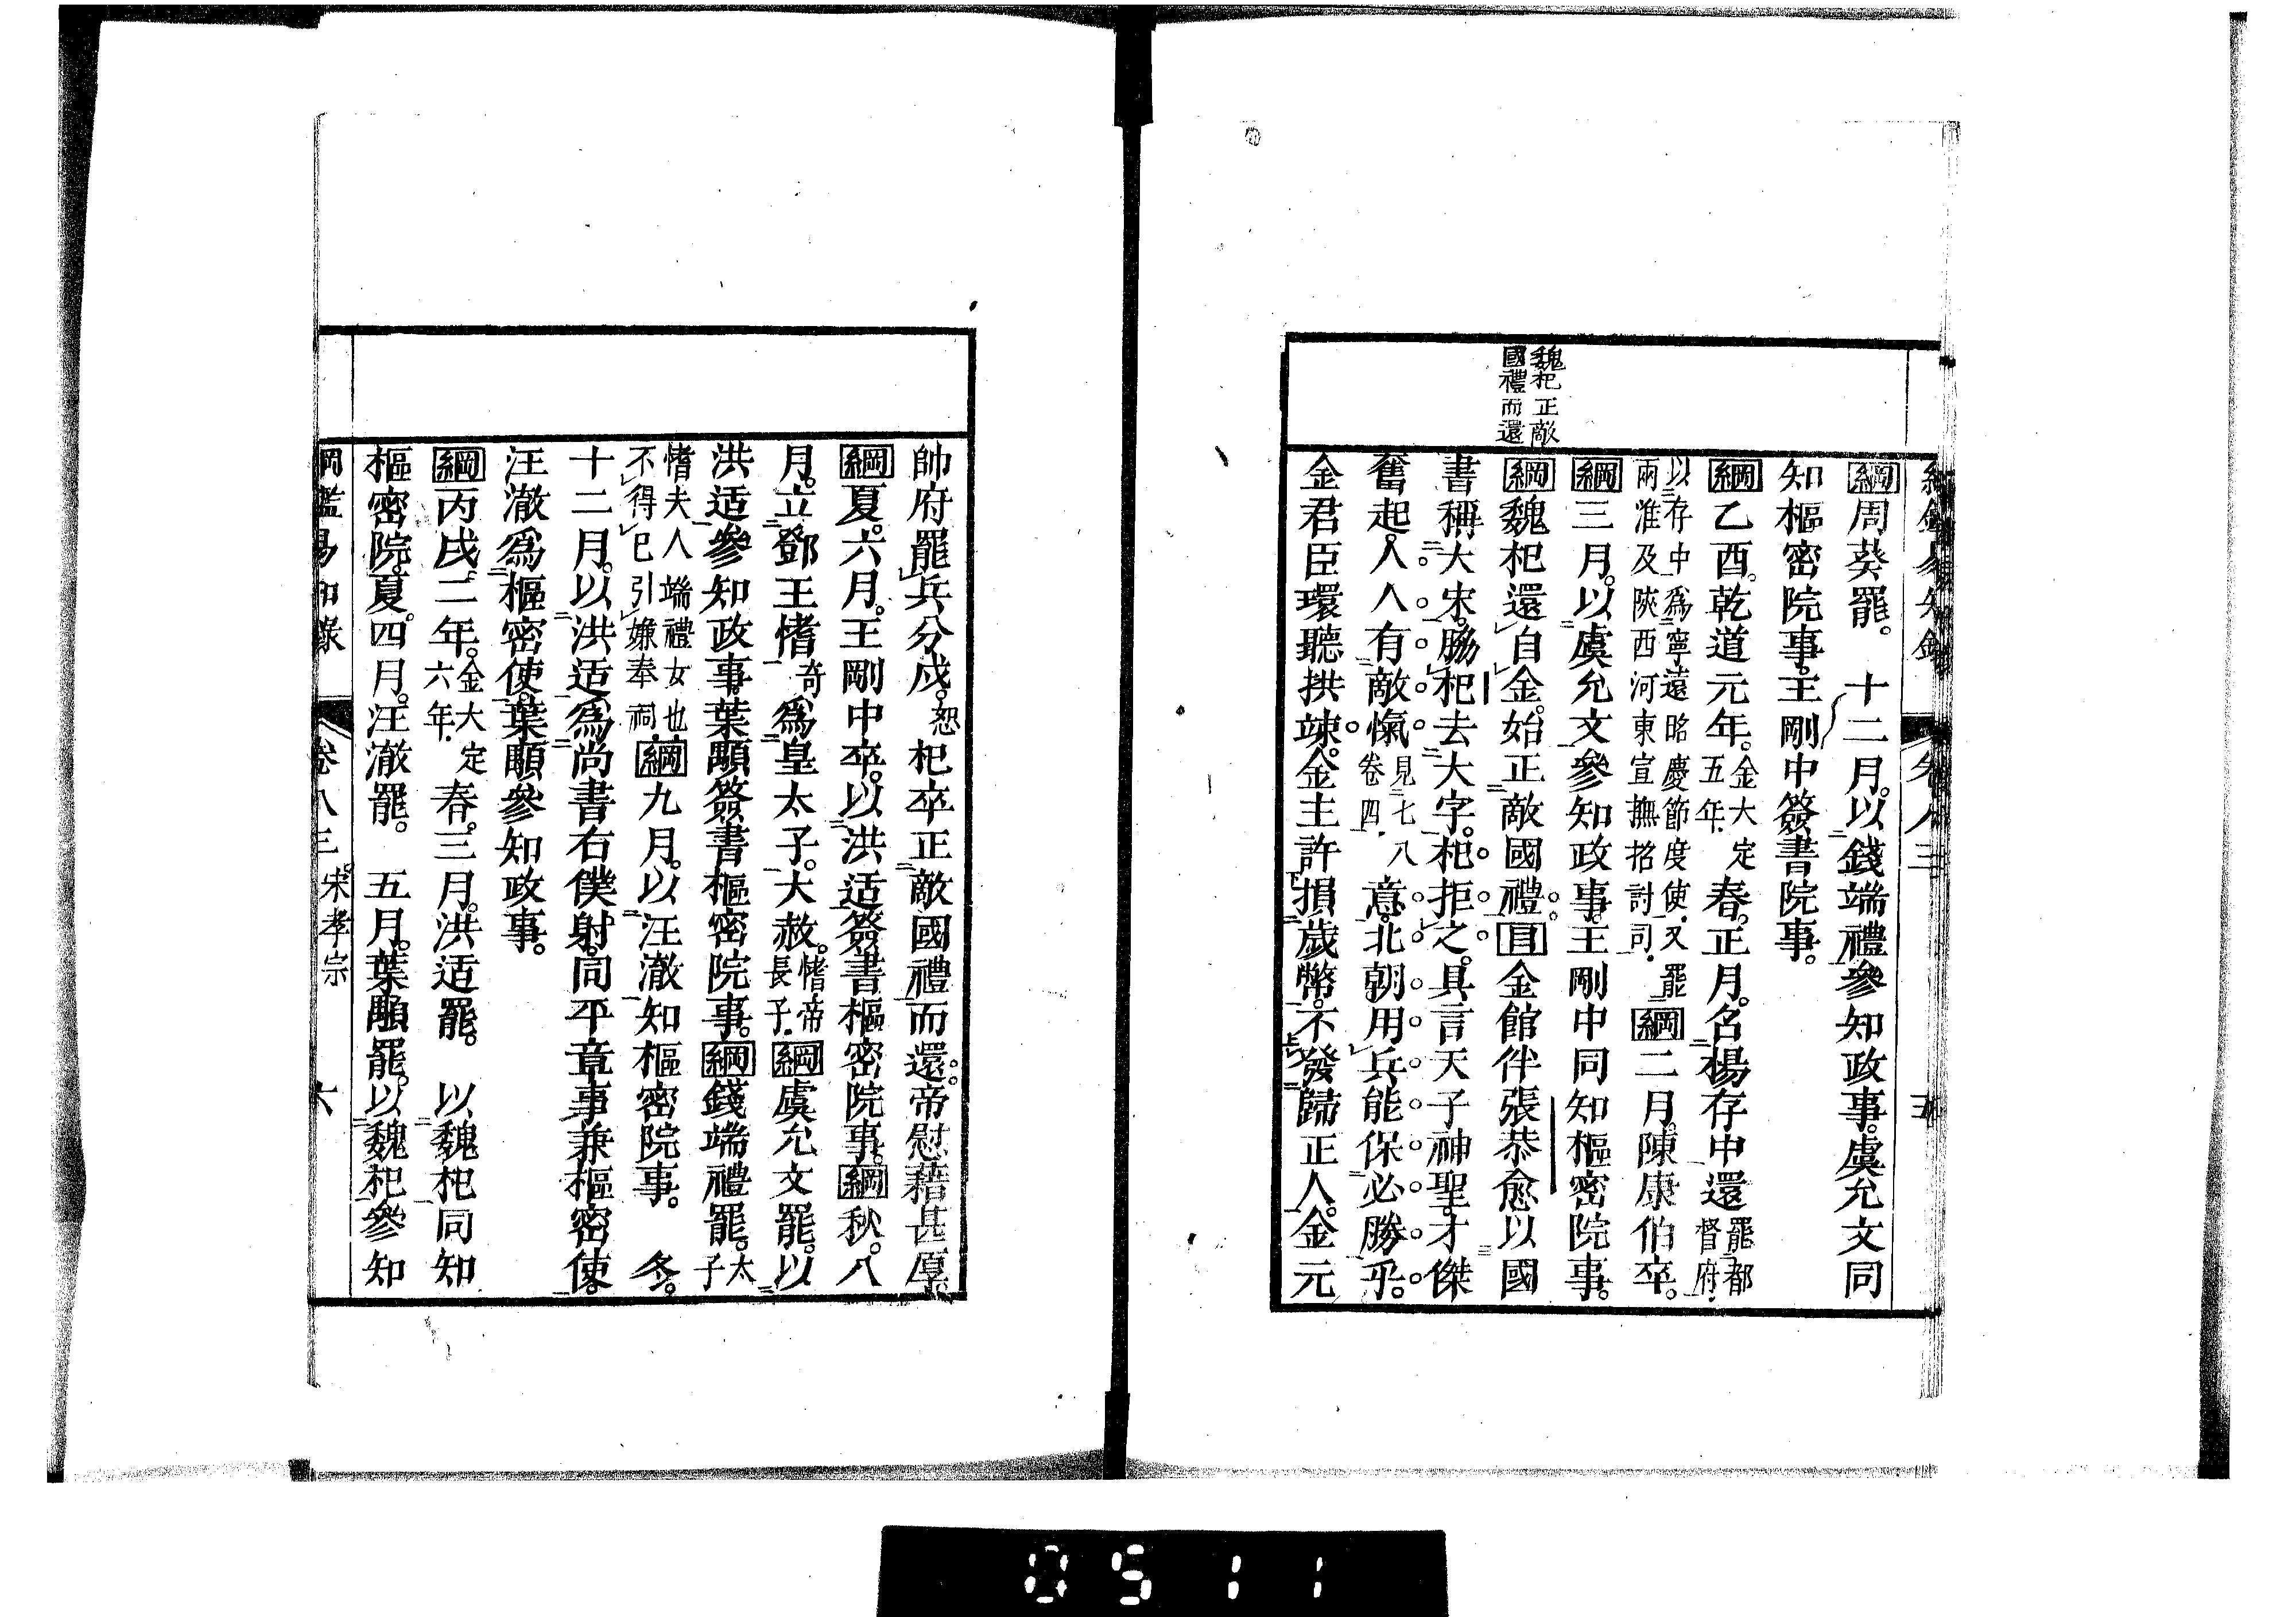 綱周葵罷。 十二月。以錢端禮參知政事。虞允文同
知樞密院事。王剛中簽書院事。
綱乙酉。乾道元年。金大定五年。春。正月。名楊存中還罷都督府。
以存中爲寧遠昭慶節度使。又罷
兩淮及陝西河東宣撫招討司。綱二月。陳康伯卒。
綱三月。以虞允文參知政事。王剛中同知樞密院事。
魏杞正敵
國禮而還
綱魏杞還自金。始正敵國禮。目金館伴張恭愈以國
書稱大宋。脇杞去大字。杞拒之。具言天子神聖。才傑
奮起。人人有敵愾見七八卷四。意。北朝用兵能保必勝乎。
金君臣環聽拱竦。金主許損歲幣。不發歸正人。金元
帥府罷兵分戍。恕杞卒正敵國禮而還。帝慰藉甚厚。
綱夏。六月。王剛中卒。以洪适簽書樞密院事。綱秋。八
月。立鄧王愭奇爲皇太子。大赦。愭帝長子。綱虞允文罷。以
洪适參知政事。葉顒簽書樞密院事。綱錢端禮罷。太子
愭夫人端禮女也
不得已引嫌奉祠。綱九月。以汪澈知樞密院事。 冬。
十二月。以洪适爲尚書右僕射。同平章事兼樞密使。
汪澈爲樞密使。葉顒參知政事。
綱丙戌。二年。金大定六年。春。三月。洪适罷。 以魏杞同知
樞密院。夏。四月。汪澈罷。 五月。葉顒罷。以魏杞參知
綱鑑易知錄 卷八三 宋孝宗 六
0511